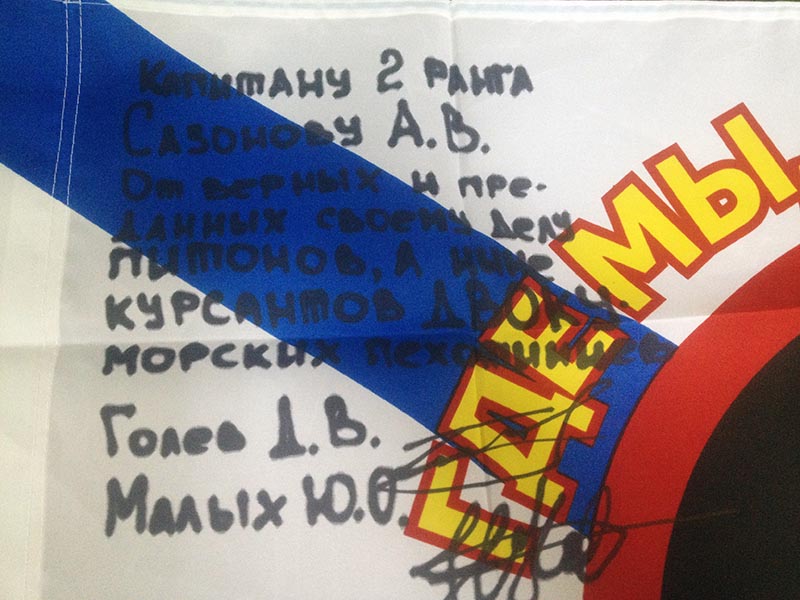 Капитану 2 ранга
Сазонову А.В.
От верных и пре-
данных своему делу
питонов, а ныне
курсантов ДВОКУ.
морских пехотинцев
Голев Д.В.
Малых Ю.О.
ГДЕ МЫ,